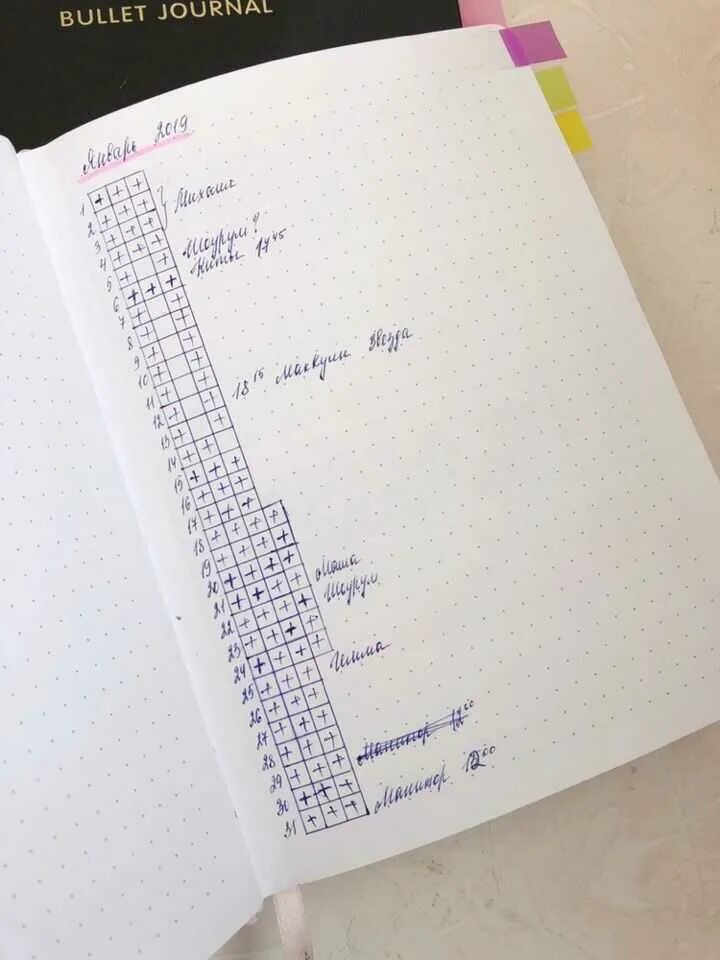 BULLET JOURNAL
Январь 2019
1
2
3
4
5
6
7
8
9
10
11
12
13
14
15
16
17
18
19
20
21
22
23
24
25
26
27
28
29
30
31
Михаил
Шоурум ?
17 45
18 15 Маккуин Звезда
Маша
Шоурум
Гемма
Маникюр 12 00
Маникюр 12 00